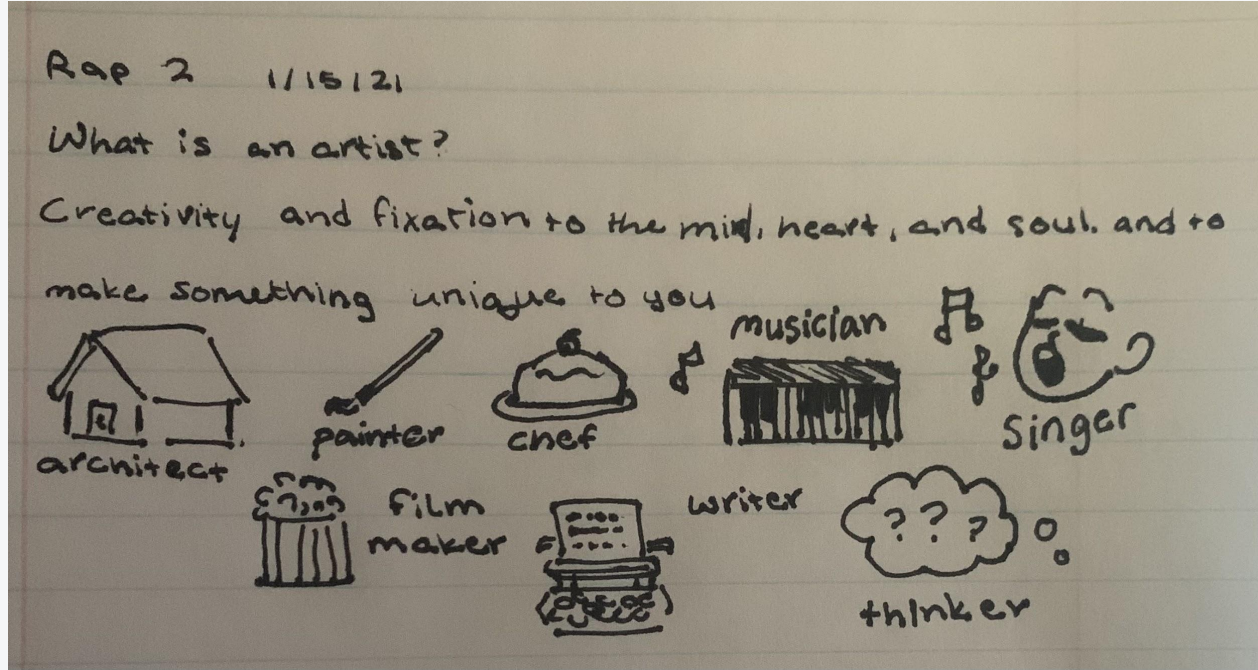 Rap 2 1/15/21
What is an artist?
Creativity and fixation to the mind, heart, and soul. and to
make something unique to you
musician
painter
chef
singer
architect
film
maker
writer
???
thinker